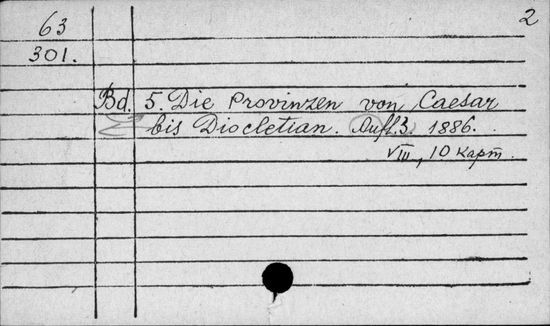 63
2
301.
Bd. 5. Die Provinzen von Caesar
bis Diocletian. Aufl. 3. 1886.
VIII, 10 карт.